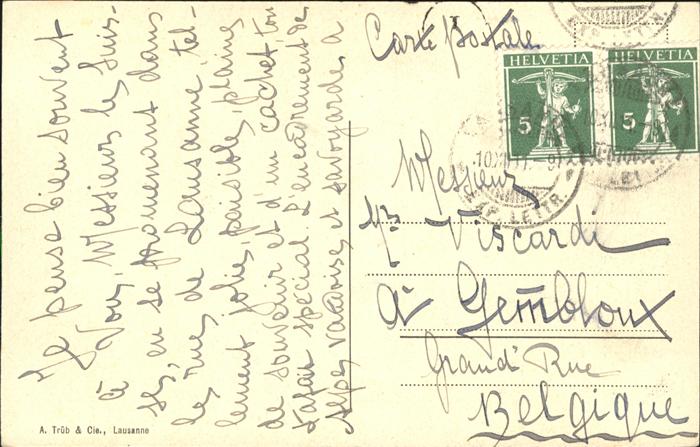 Je pense bien souvent
à Vous, Messieurs les Suis-
ses, en se promenant dans
les rues de Lausanne tel-
lement jolies, paisibles, pleines
de souvenir et d'un cachet tout
à fait spécial. L'encadrement des
Alpes vaudoises et savoyardes a
Carte Postale
HELVETIA
5
HELVETIA
5
10.XI.11. 9
LETTR.
Messieur
Viscardi
à Gembloux
Grand' Rue
Belgique
A. Trüb & Cie., Lausanne